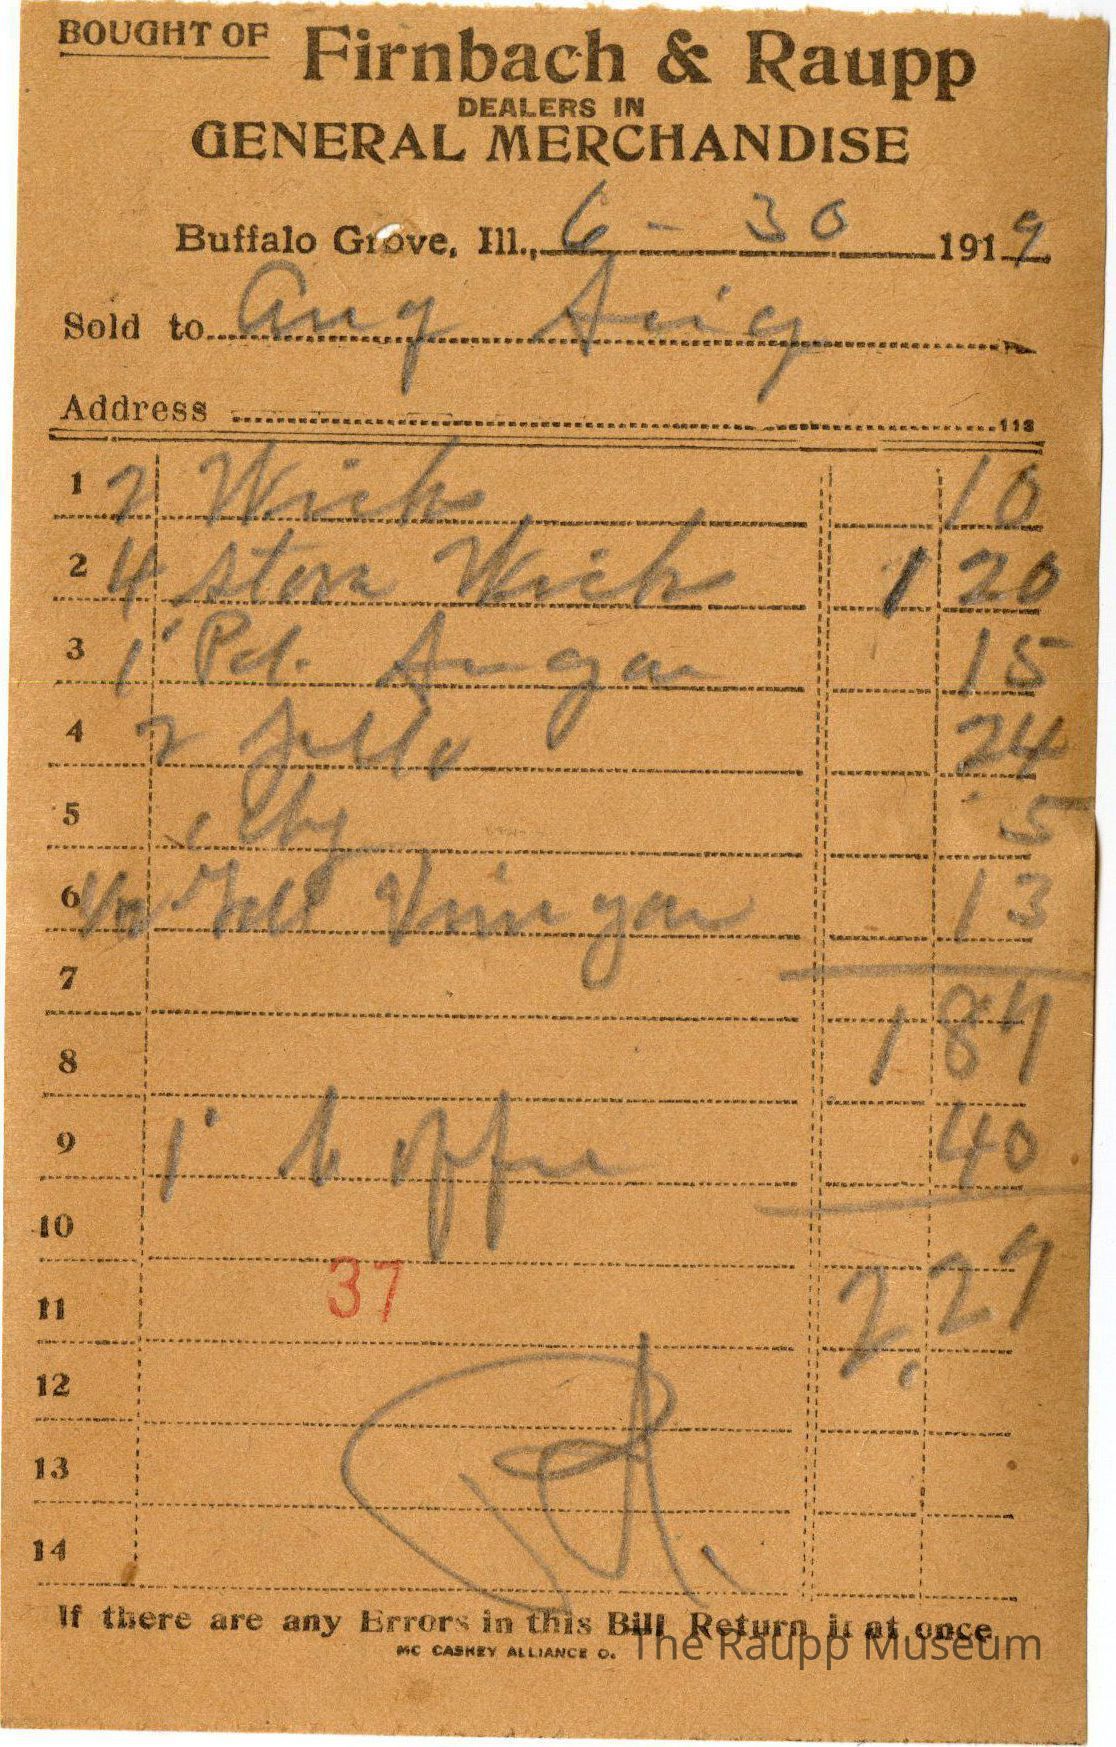 BOUGHT OF Firnbach & Raupp
DEALERS IN
GENERAL MERCHANDISE
Buffalo Grove, Ill., 6 - 30 1919
Sold to Aug Seig
Address 118
1 2 Wick 10
2 4 Stove Wick 1 20
3 1 Pd. Sugar 15
4 2 Jello 24
5 5
6 1/2 Gall Vinegar 13
7
8 1 87
9 1 Coffee 40
10
11 37 2.27
12
13
14
If there are any Errors in this Bill Return it at once
MC CASKEY ALLIANCE O.
The Raupp Museum